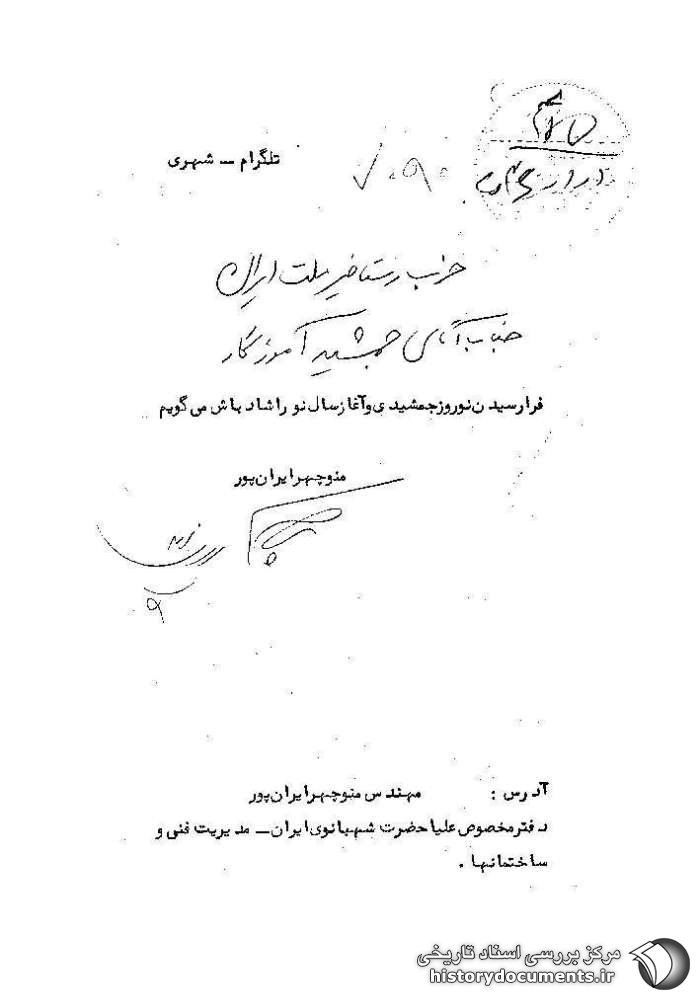 تلگرام ــ شهری
حزب رستاخیز ملت ایران
جناب آقای جمشید آموزگار
فرارسیدن نوروز جمشیدی و آغاز سال نو را شادباش می گویم
منوچهر ایران پور
۹
آدرس : مهندس منوچهر ایران پور
دفتر مخصوص علیاحضرت شهبانوی ایران ــ مدیریت فنی و
ساختمانها .
مرکز بررسی اسناد تاریخی
historydocuments.ir